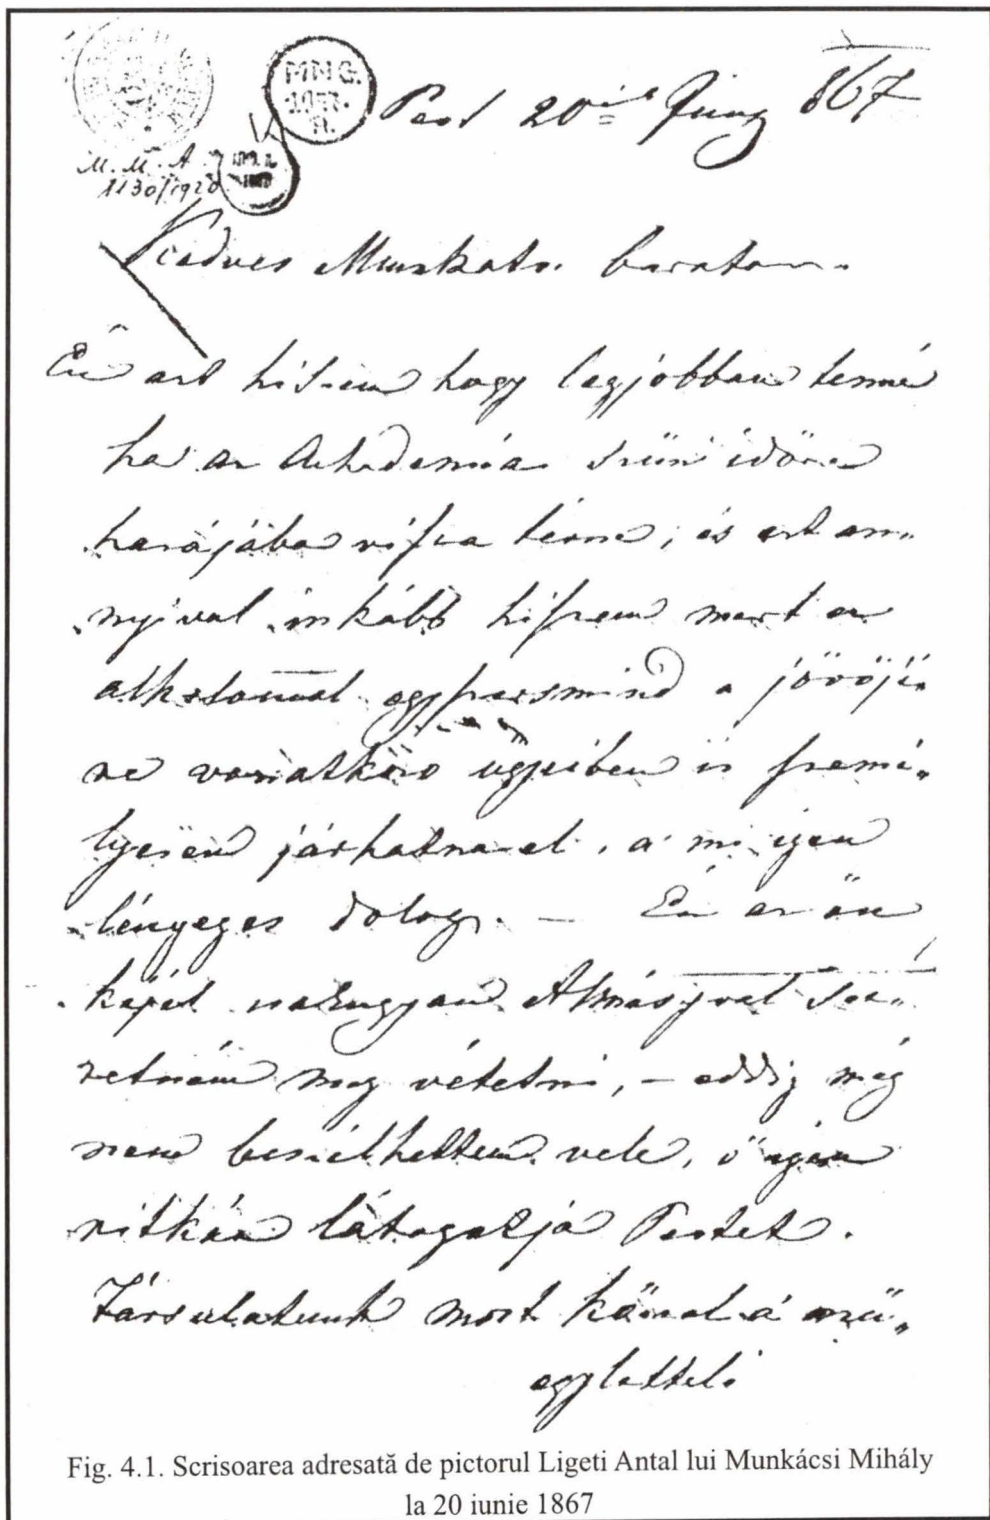 MNG.
M. M. A.
1130/1920
Pest 20ik Juny 867
Kedves Munkatsi baratom.
Én azt hiszem hogy legjobban tenné
ha az Akademia szün időre
hazájába vissza térne, és ezt an„
nyival inkább hiszem mert ez
alkalommal egyszersmind a jövőjé„
re vonatkozó ügyeiben is szemé„
lyesen járhatna el, a mi igen
lényeges dolog. — Én az ön
képét ugyan Almásyval sze„
retném meg vétetni, — eddig még
nem beszélhettem vele, ő igen
ritkán látogatja Pestet.
Társulatunk most
Fig. 4.1. Scrisoarea adresată de pictorul Ligeti Antal lui Munkácsi Mihály
la 20 iunie 1867